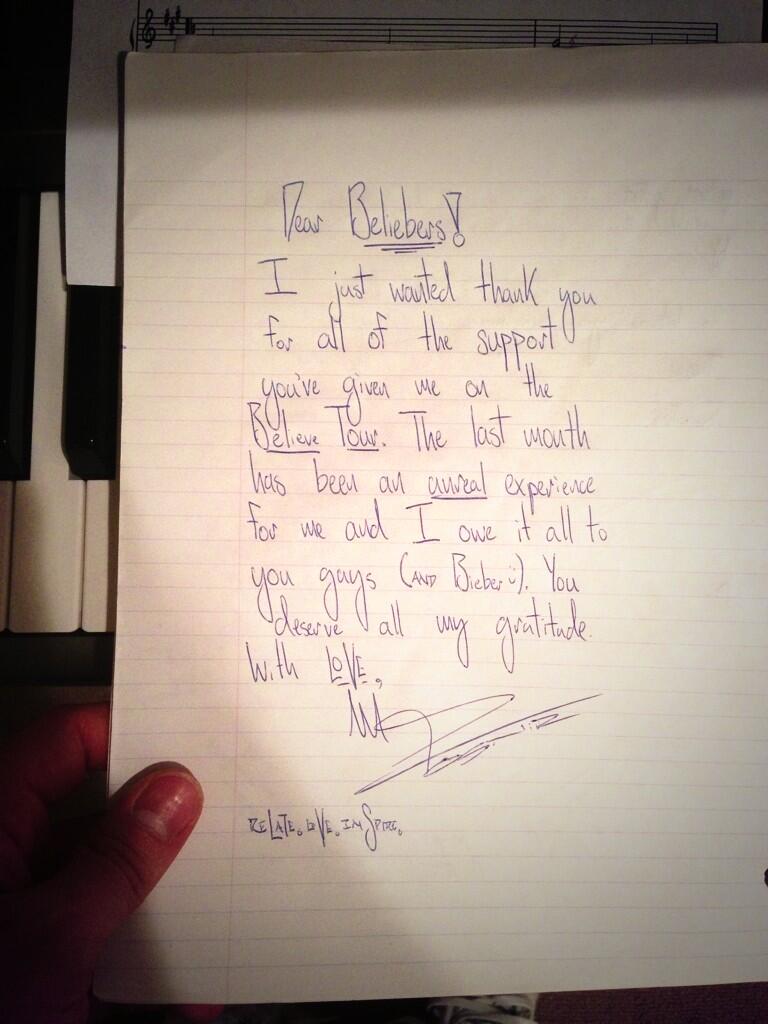 Dear Beliebers!
I just wanted thank you
for all of the support
you've given me on the
Believe Tour. The last month
has been an unreal experience
for me and I owe it all to
you guys (AND Bieber ü). You
deserve all my gratitude.
With LOVE,
RELATE. LOVE. INSPIRE.